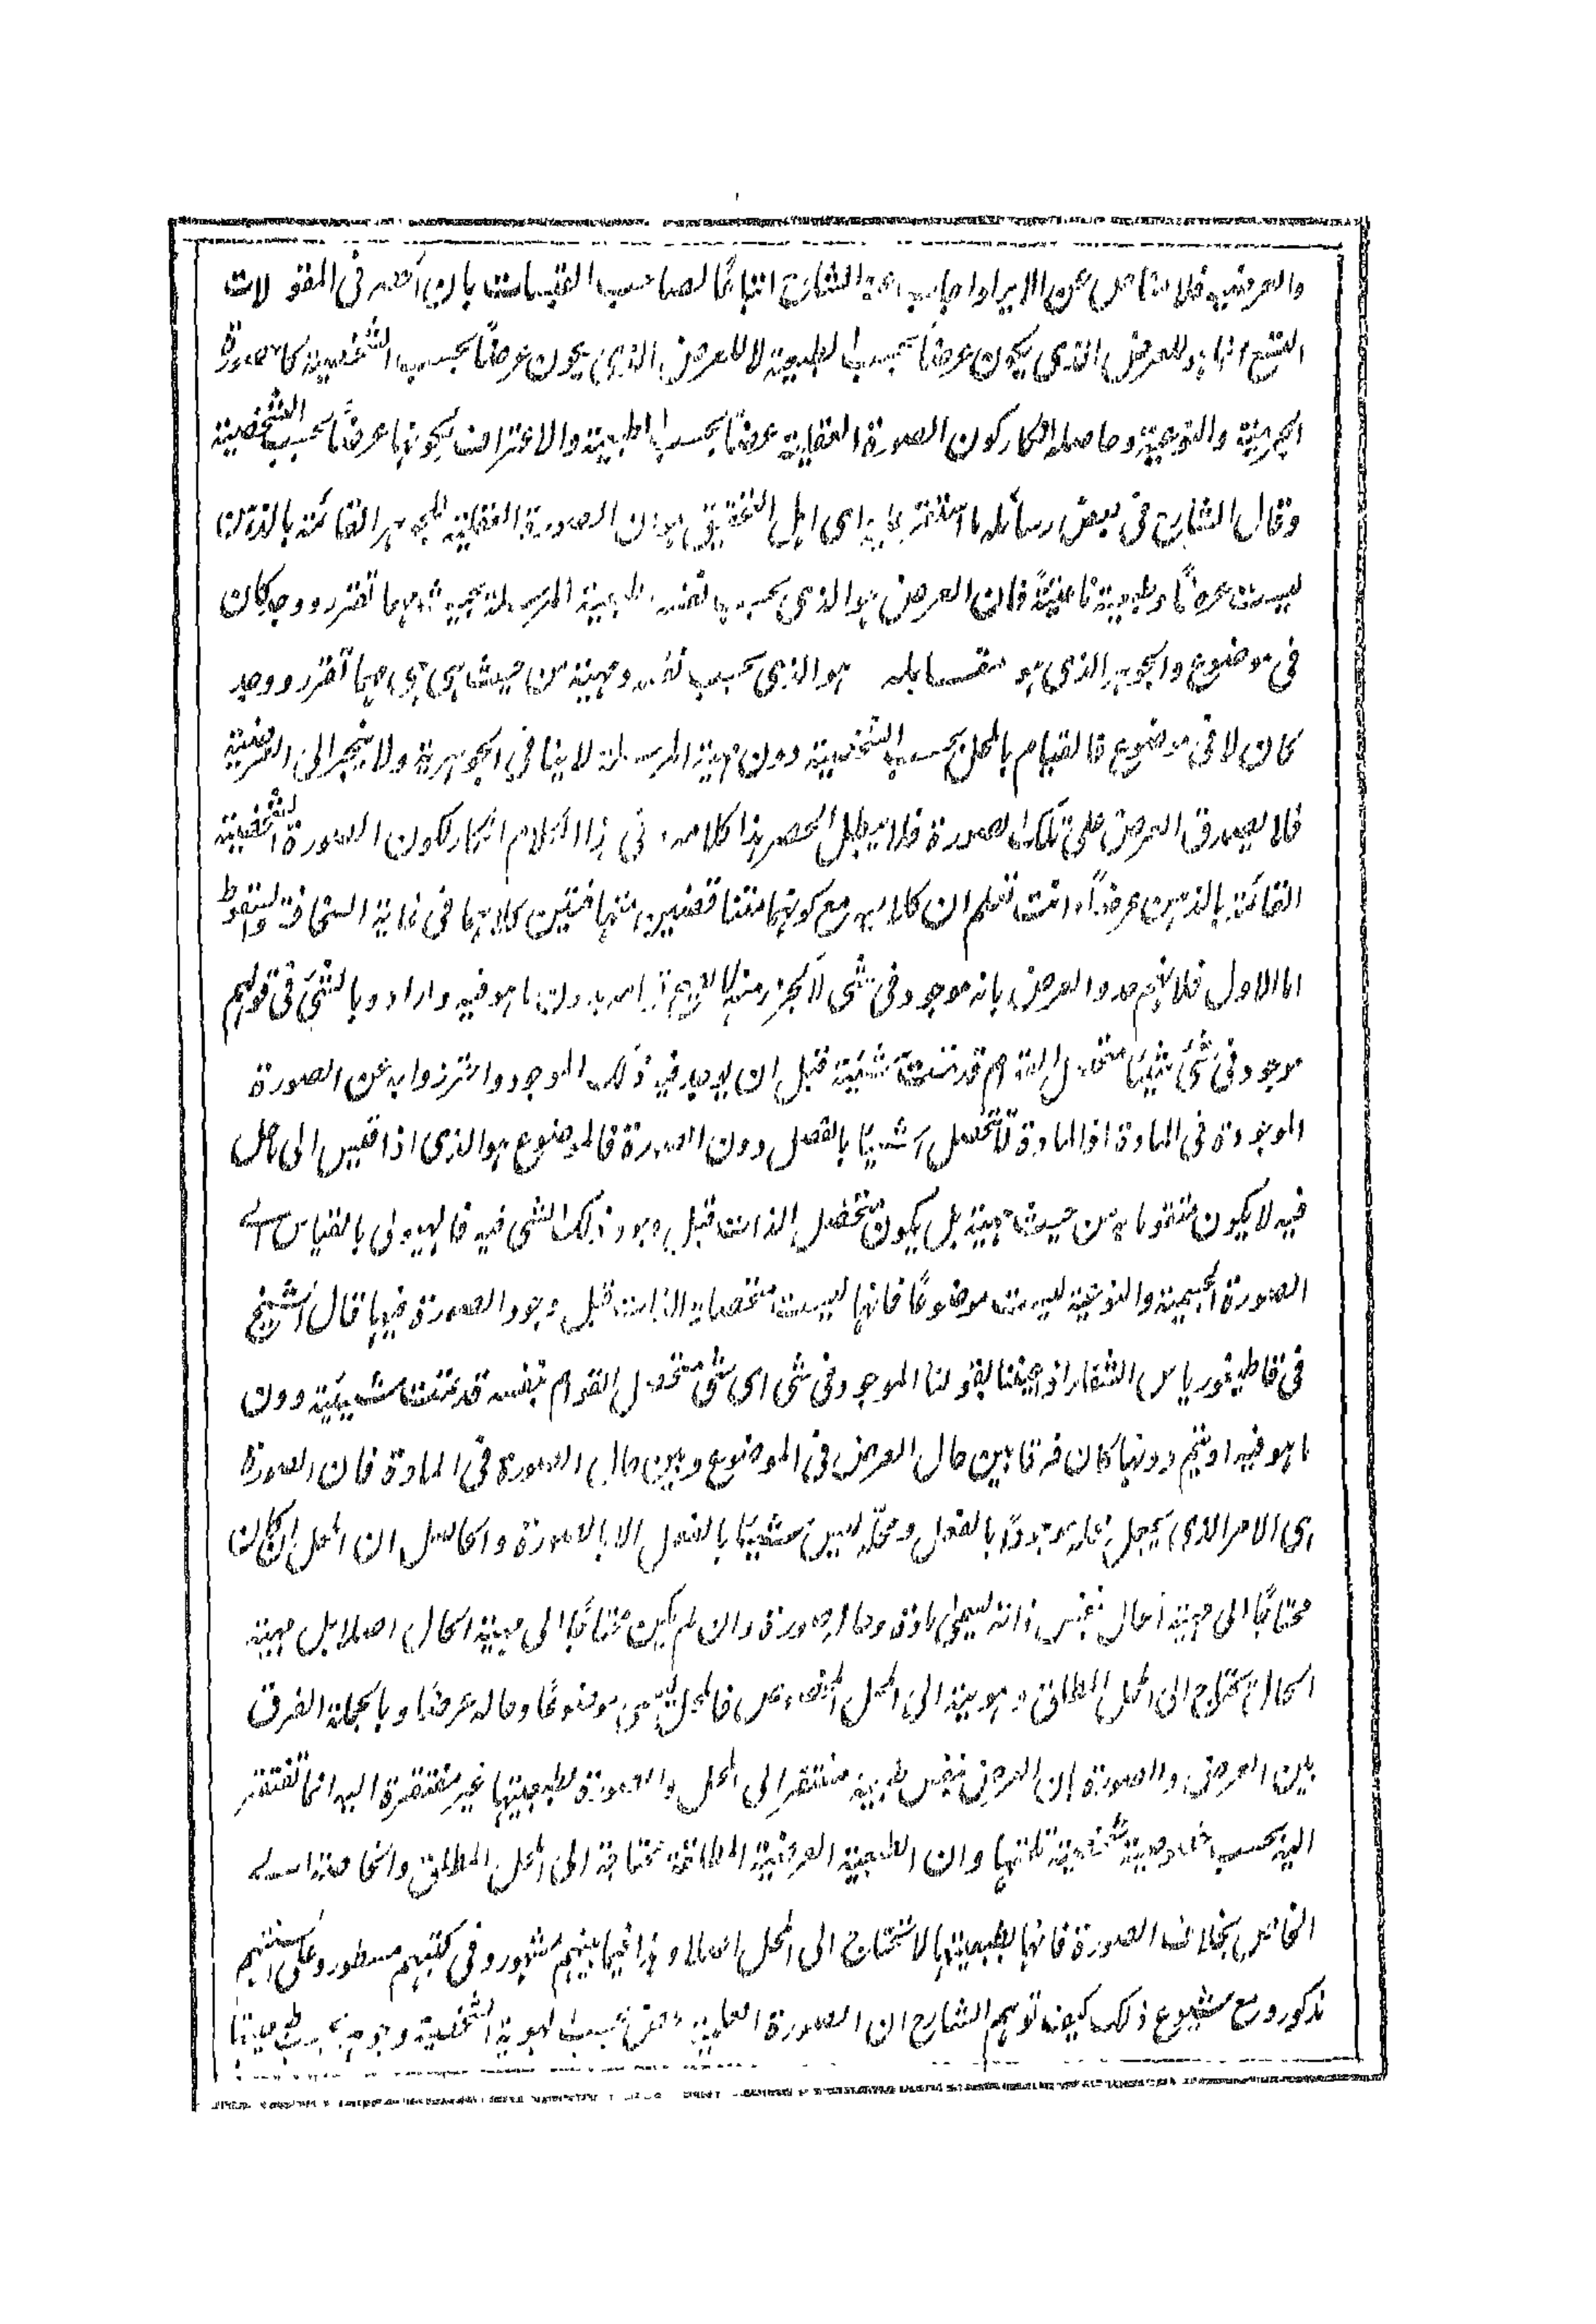 والعرضية فلا مناص عن الايراد اجاب عنه الشارح اتباعًا لصاحب القبسات بان الحصر فى المقولات
التسع انما هو للعرض الذى يكون عرضًا بحسب الطبيعة لا للعرض الذى يكون عرضًا بحسب الشخصية كالصورة
الجرمية والنوعية وحاصله انكار كون الصورة العقلية عرضًا بحسب الطبيعة والاعتراف بكونها عرضًا بحسب الشخصية
وقال الشارح فى بعض رسائله ما استقر عليه راى اهل التحقيق هو ان الصورة العقلية للجوهر القائمة بالذهن
ليست عرضًا وطبيعة ناعتيةً فان العرض هو الذى بحسب نفس طبيعة المرسلة بحيث مهما تقرر ووجد كان
فى موضوع والجوهر الذى هو مقابله هو الذى بحسب نفس مهية من حيث هى هى مهما تقرر ووجد
كان لا فى موضوع فالقيام بالمحل بحسب الشخصية دون مهية المرسلة لا ينافى الجوهرية ولا ينجر الى العرضية
فلا يصدق العرض على تلك الصورة فلا يبطل الحصر هذا كلامه ففى هذا الكلام انكار لكون الصورة الشخصية
القائمة بالذهن عرضًا وانت تعلم ان كلاميه مع كونهما متناقضين متهافتين كلاهما فى غاية السخافة والسقوط
اما الاول فلانهم حدوا العرض بانه موجود فى شى لا كجزء منه لا يصح قوامه بدون ما هو فيه وارادوا بالشئ فى قولهم
موجود فى شئ شيئًا متحصل القوام قد تمت شيئية قبل ان يوجد فيه ذلك الموجود واحترزوا به عن الصورة
الموجودة فى المادة اذ المادة لا تتحصل شيئًا بالفعل دون الصورة فالموضوع هو الذى اذا قيس الى حال
فيه لا يكون متقومًا به من حيث مهية بل يكون متحصل الذات قبل وجود ذلك الشى فيه فالهيولى بالقياس الى
الصورة الجسمية والنوعية ليست موضوعًا فانها ليست متحصلة الذات قبل وجود الصورة فيها قال الشيخ
فى قاطيغورياس الشفاء اذ عنينا بقولنا الموجود فى شى اى شئ متحصل القوام بنفسه قد تمت شيئية دون
ما هو فيه او يتم دونها كان فرقا بين حال العرض فى الموضوع وبين حال الصورة فى المادة فان الصورة
هى الامر الذى يجعل محله موجودًا بالفعل ومحله ليس شيئًا بالفعل الا بالصورة والحاصل ان المحل ان كان
محتاجًا الى مهية الحال بنفس ذاته ليسمى مادة وحاله صورة وان لم يكن محتاجًا الى مهية الحال اصلا بل مهية
الحال تحتاج الى المحل المطلق وهويته الى المحل المخصوص فالمحل يسمى موضوعًا وحاله عرضًا وبالجملة الفرق
بين العرض والصورة ان العرض بنفس طبيعة مفتقر الى المحل والصورة بطبيعتها غير مفتقرة اليه انما تفتقر
اليه بحسب خصوصية شخصية تلحقها وان الطبيعة العرضية المطلقة محتاجة الى المحل المطلق والخاصة الى
الخاص بخلاف الصورة فانها بطبيعتها لا تحتاج الى المحل اصلا وهذا فيما بينهم مشهور وفى كتبهم مسطور وعلى السنتهم
مذكور ومع شيوع ذلك كيف توهم الشارح ان الصورة العلمية عرض بحسب الهوية الشخصية وجوهر بحسب طبيعتها